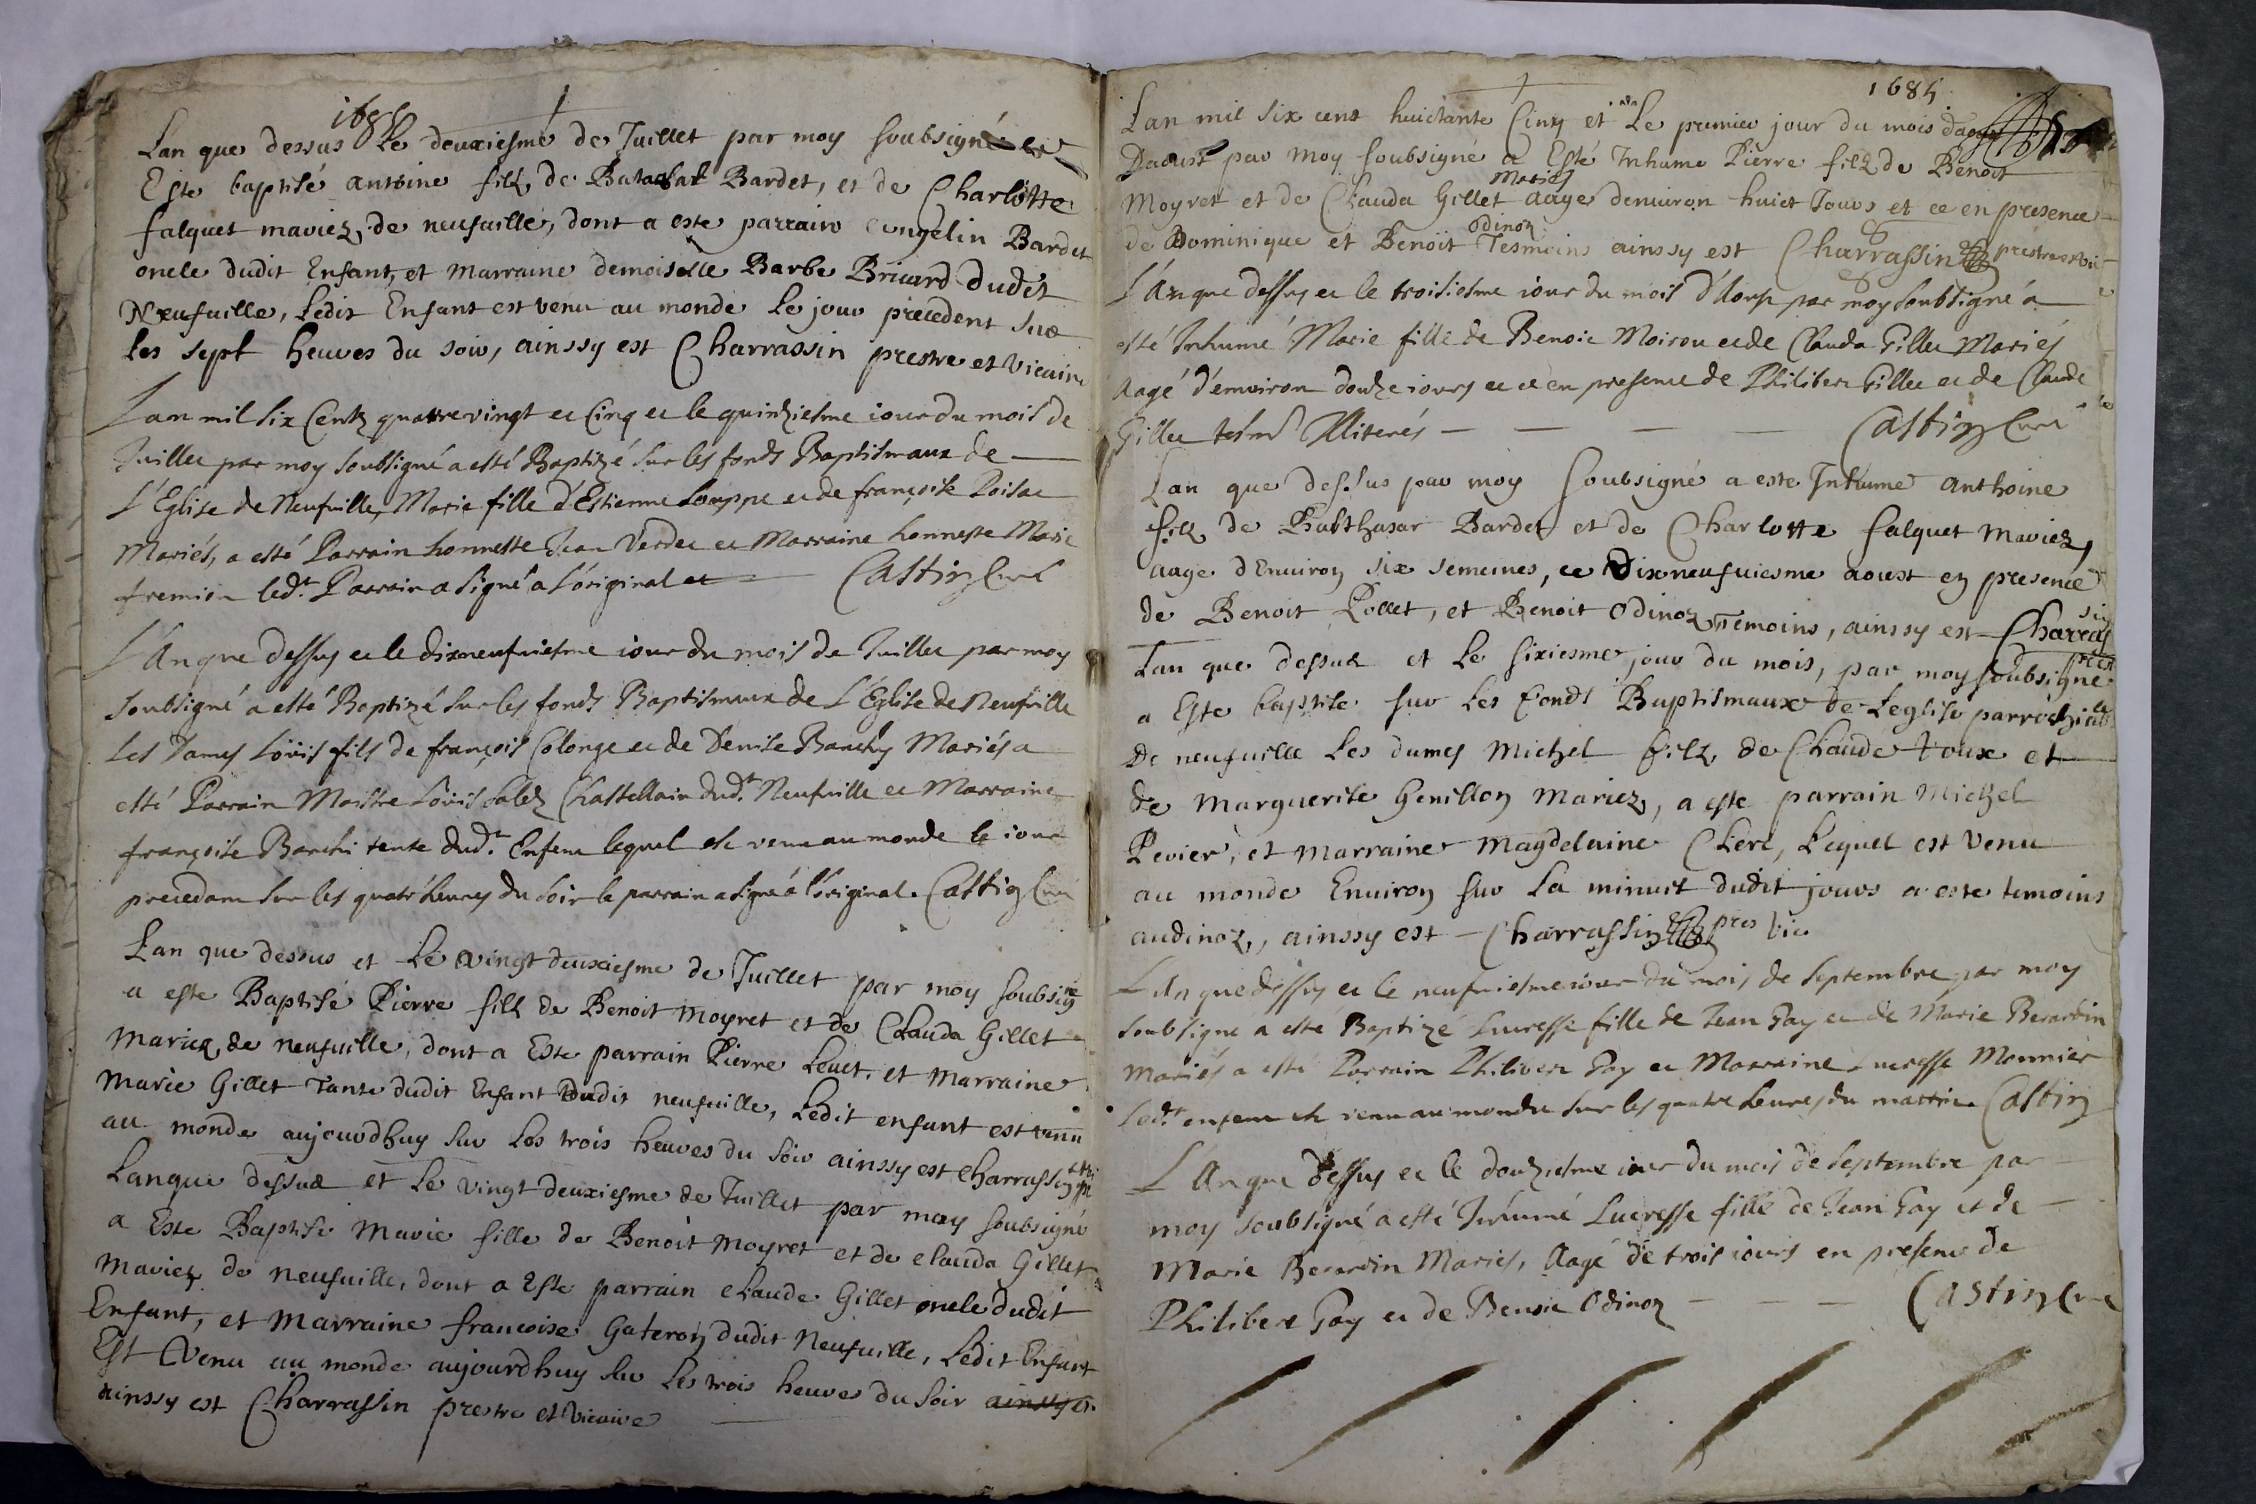 1685
Lan que dessus Le deuxiesme de Juillet par moy soubsigné
Este baptisé antoine filz de Bardet, et de Charlotte
falquet mariez de neufuille, dont a este parrain Bardet
oncle dudit Enfant, et Marraine demoiselle Barbe Briard dudit
Neufuille, Ledit Enfant est venu au monde Le jour precedent sur
les sept heures du soir, ainssy est Charrassin prestre et vicaire
Lan mil six Centz quattre vingt et Cinq et le quinziesme iour du mois de
Juillet par moy soubsigné a esté Baptizé sur les fonds Baptismaux de
L'Eglise de Neufuille, Marie fille d'Estienne et de françoise
Mariés, a esté Parrain honneste Jean Verdet et Marraine honneste Marie
fremion led.t Parrain a signé a l'original Castin Curé
L'An que dessus et le dixneufuiesme iour du mois de Juillet par moy
soubsigné a esté Baptizé sur les fonds Baptismaux de L'Eglise de Neufuille
Les dames Loüis fils de françois Colonge et de Denise Banchy Mariés a
esté Parrain Maistre Loüis Chastellain dud.t Neufuille et Marraine
françoise Banchi tente dud.t Enfent lequel est venu au monde le iour
precedant sur les quatre heures du soir le parrain a signé a l'original. Castin Curé
Lan que dessus et Le vingt deuxiesme de Juillet par moy soubsigné
a este Baptisé Pierre filz de Benoit Moyret et de Clauda Gillet
Mariez, de neufuille, dont a Este parrain Pierre Leuet, et Marraine
Marie Gillet Tante dudit Enfant Dudit neufuille, Ledit enfant est venu
au monde aujourdhuy sur Les trois heures du soir ainssy est Charrassin
Lanque dessus et Le vingt deuxiesme de Juillet par moy soubsigné
a Este Baptisé Marie fille de Benoit Moyret et de clauda Gillet
Mariez de neufuille, dont a Este parrain claude Gillet oncle dudit
Enfant, et Marraine francoise Gateron dudit Neufuille, Ledit Enfant
Est Venu au monde aujourdhuy sur Les trois heures du soir
ainssy est Charrassin prestre et vicaire
1685
Lan mil six cent huictante Cinq et Le premier jour du mois
Daoust par moy soubsigné a Esté Inhume Pierre filz de Benoit
Moyret et de Clauda Gillet Mariez aage denuiron huict Jours et ce en presence
de Dominique et Benoit Odinoz Tesmoins ainssy est Charrassin
L'An que dessus et le troisiesme iour du mois d'Aoust par moy soubsigné a
esté Inhumé Marie fille de Benoit Moirou et de Clauda Gillet Mariés
Aagé d'enuiron douze iours et ce en presence de Philibert Gillet et de Claude
Gillet tesm.s Illiterés Castin Curé
Lan que dessus par moy soubsigné a este Inhume anthoine
filz de Balthazar Bardet et de Charlotte falquet mariez,
aage dEnuiron six semeines, ce Dixneufuiesme aoust en presence
de Benoit Pollet, et Benoit Odinoz Temoins, ainssy est Charrassin
Lan que dessus et Le sixiesme jour du mois, par moy soubsigné
a Este baptise sur Les fonds Baptismaux de Leglise parrochialle
De neufuille Les dames Michel filz de Claude Voux et
de Marguerite Genillon Mariez, a este parrain Michel
Perier, et Marraine Magdelaine Clerc, Lequel est Venu
au monde Enuiron sur La minuit dudit jours a este temoins
audinoz,, ainssy est Charrassin pres vic
L'An que dessus et le neufuiesme iour du mois de Septembre par moy
soubsigné a esté Baptizé Lucresse fille de Jean Gay et de Marie Berardin
Mariés a esté Parrain Philibert Gay et Marraine Lucresse Monnier
Led.t enfent est venu au monde sur les quatre heures du mattin. Castin
L'An que dessus et le douziesme iour du mois de Septembre par
moy soubsigné a esté Inhumé Lucresse fille de Jean Gay et de
Marie Berardin Mariés, Aagé de trois iours en presence de
Philibert Gay et de Benoit Odinoz Castin Curé